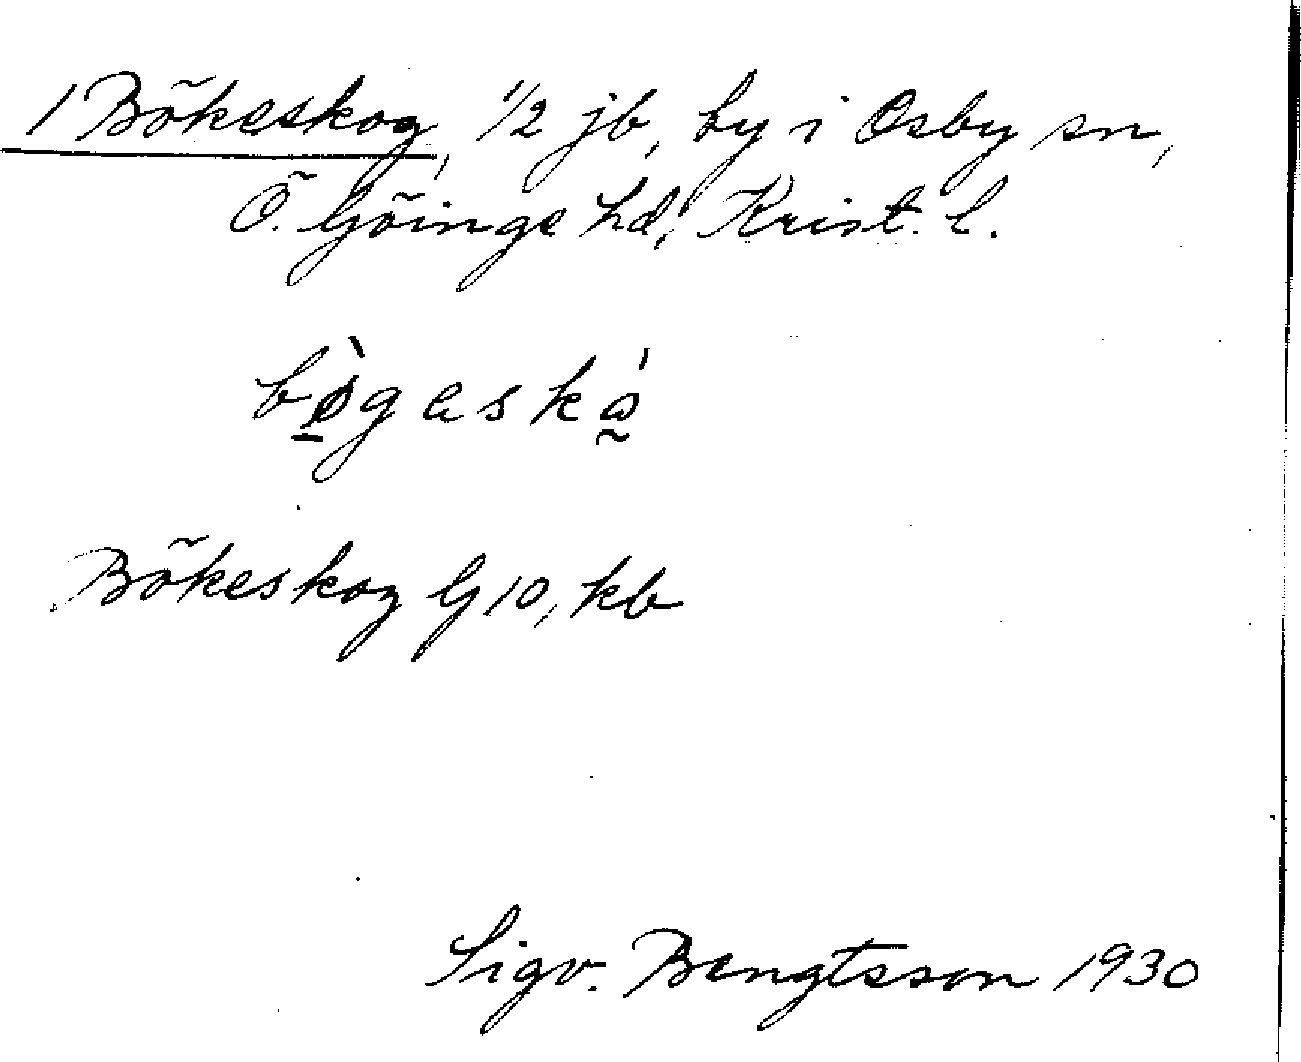 1 Bökeskog, 1/2 jb, by i Osby sn,
Ö. Göinge hd, Krist. l.
bø̠̀gaskó̰
Bökeskog G 10, kb
Sigv. Bengtsson 1930